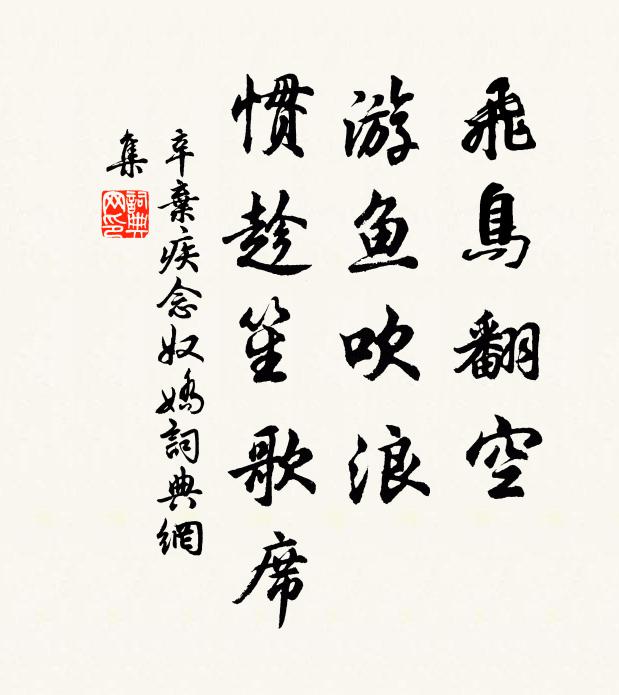 飛鳥翻空
游鱼吹浪
慣趁笙歌席
辛棄疾念奴嬌詞典網
集
詞典
网印